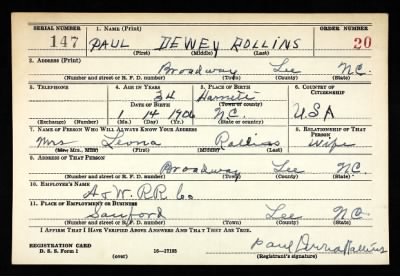 SERIAL NUMBER 1. NAME (Print) ORDER NUMBER
147 PAUL DEWEY ROLLINS 20
(First) (Middle) (Last)
2. ADDRESS (Print)
Broadway Lee N.C.
(Number and street or R. F. D. number) (Town) (County) (State)
3. TELEPHONE 4. AGE IN YEARS 5. PLACE OF BIRTH 6. COUNTRY OF CITIZENSHIP
34 Harnett
DATE OF BIRTH (Town or county)
1 14 1906 N.C. USA
(Exchange) (No.) (Mo.) (Day) (Yr.) (State or country)
7. NAME OF PERSON WHO WILL ALWAYS KNOW YOUR ADDRESS 8. RELATIONSHIP OF THAT PERSON
Mrs Leona Rollins Wife
(Mr., Mrs., Miss) (First) (Middle) (Last)
9. ADDRESS OF THAT PERSON
Broadway Lee N.C.
(Number and street or R. F. D. number) (Town) (County) (State)
10. EMPLOYER'S NAME
A & W. R.R. Co
11. PLACE OF EMPLOYMENT OR BUSINESS
Sanford Lee N.C.
(Number and street or R. F. D. number) (Town) (County) (State)
I AFFIRM THAT I HAVE VERIFIED ABOVE ANSWERS AND THAT THEY ARE TRUE.
REGISTRATION CARD
D. S. S. Form 1 (over) 16—17105
Paul Rollins
(Registrant's signature)